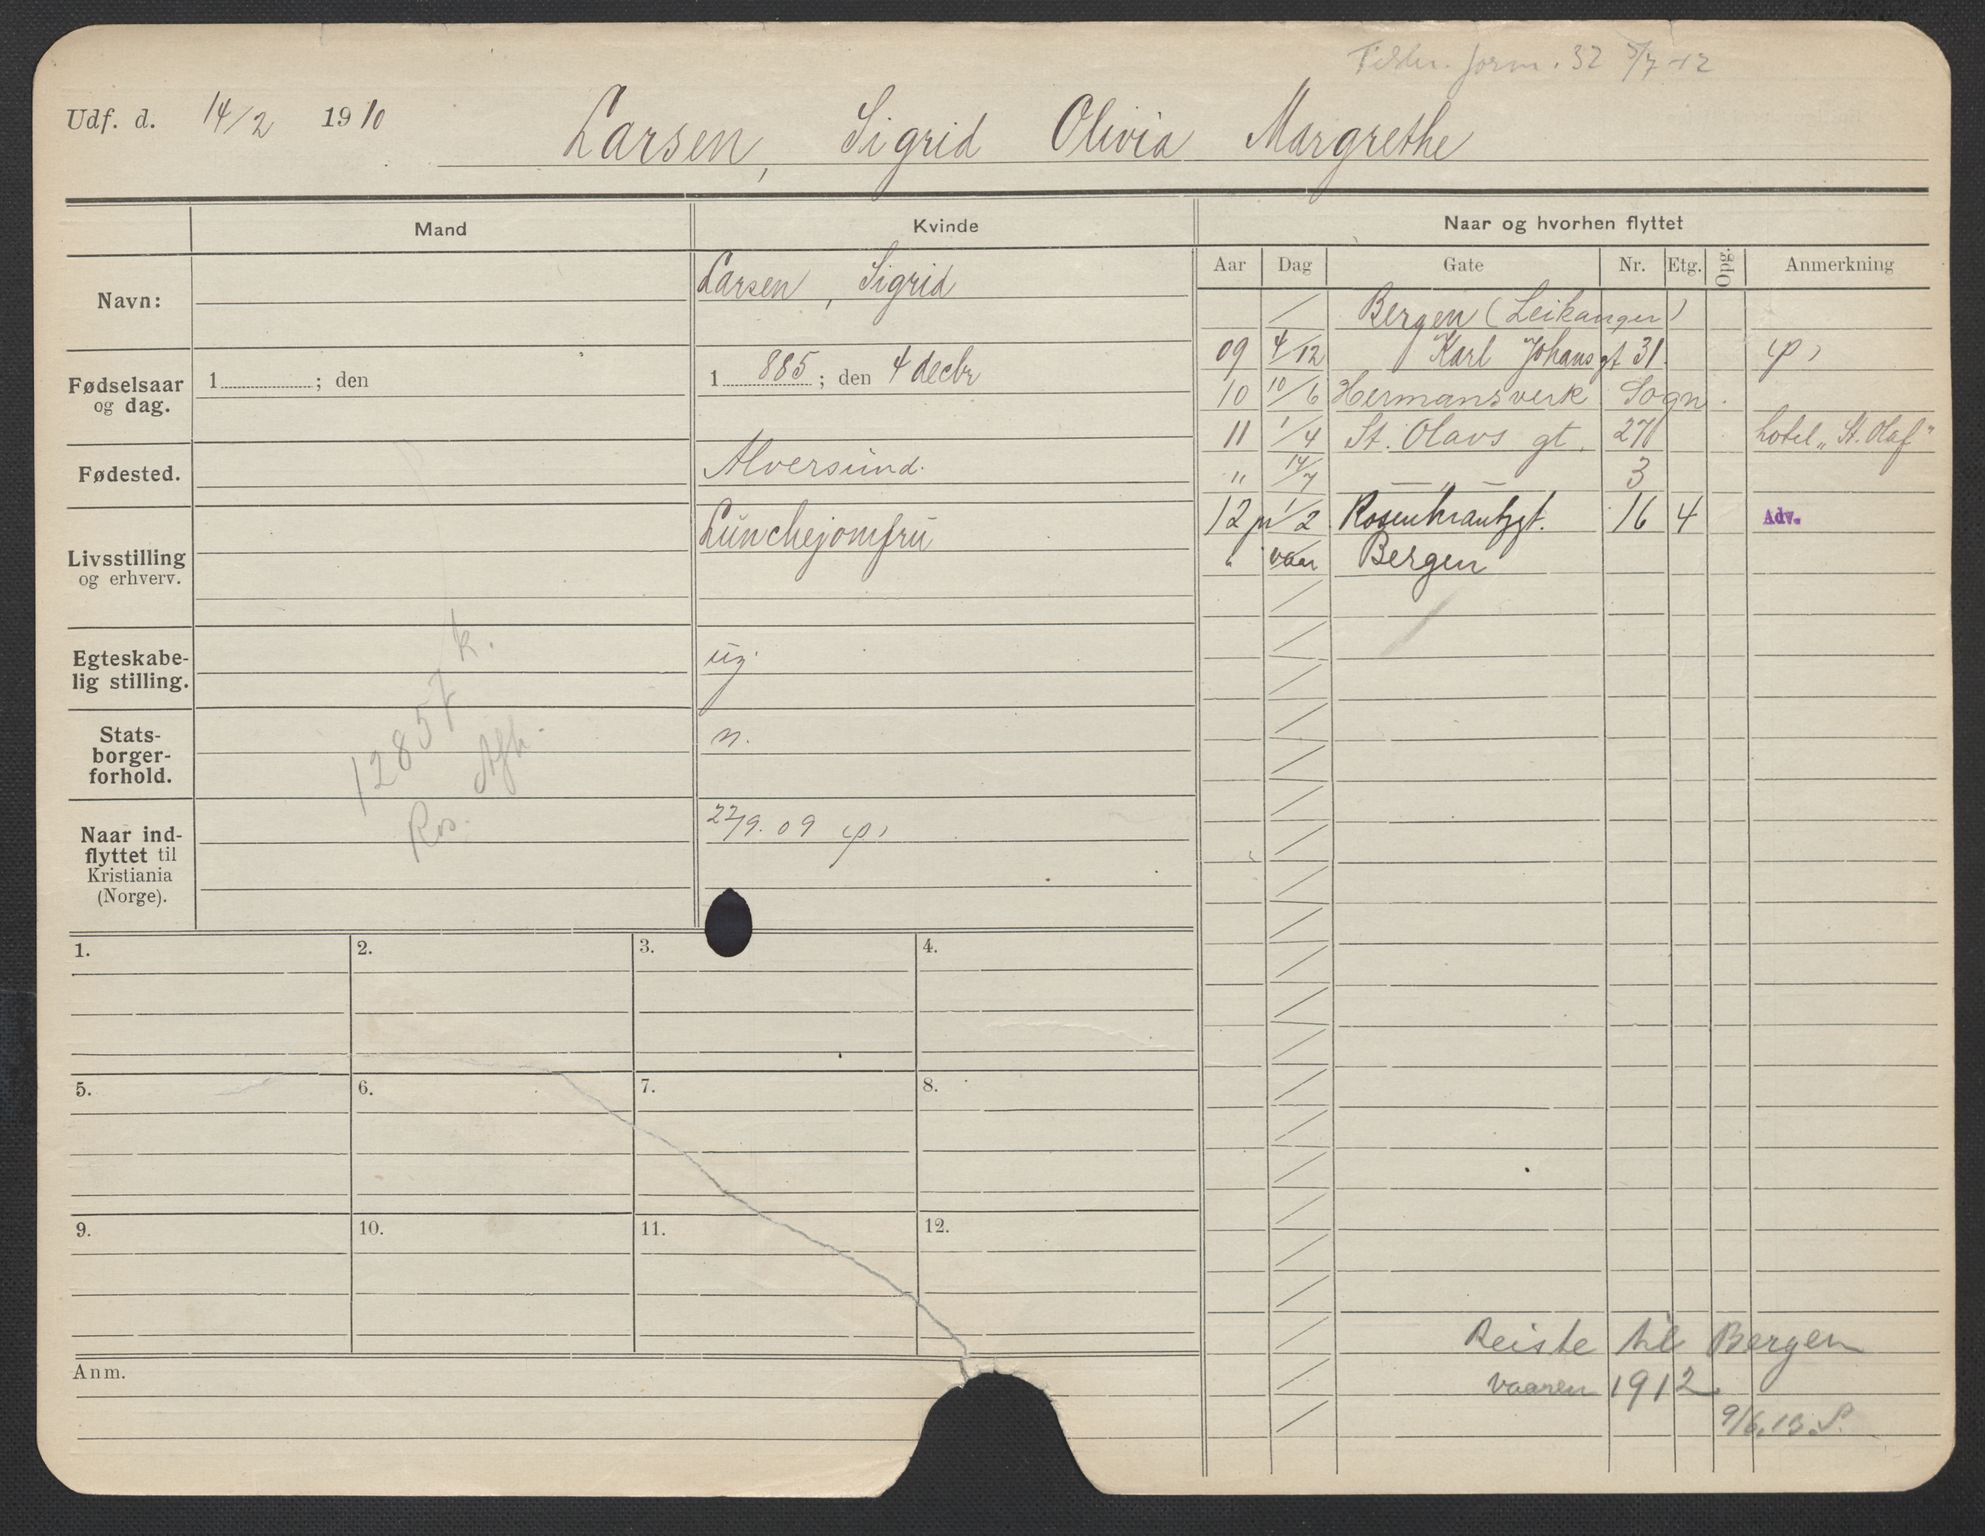 form. 32 5/7 12
Udf. d. 14/2 1910
Larsen, Sigrid Olivia Margrethe
Mand Kvinde Naar og hvorhen flyttet
Aar Dag Gate Nr. Etg. Opg. Anmerkning
Navn: Larsen, Sigrid
Fødselsaar og dag. 1 ; den 1885 ; den 4 decbr
Fødested. Alversund.
Livsstilling og erhverv. Lunchejomfru
Egteskabe-
lig stilling. ug.
Stats-
borger-
forhold. n.
Naar ind-
flyttet til
Kristiania
(Norge). 22/9. 09 (p)
12857 k.
Afh.
Ros.
Bergen (Leikanger)
09 4/12 Karl Johans gt 31. (p)
10 10/6 Hermansverk Sogn.
11 1/4 St. Olavs gt. 27 hotel „St. Olaf"
" 14/7 — „ — 3
12 pr 1/2 Rosenkrantzgt. 16 4 Adv.
" vaar Bergen
1. 2. 3. 4.
5. 6. 7. 8.
9. 10. 11. 12.
Anm.
Reiste til Bergen
vaaren 1912.
9/6.13 S.